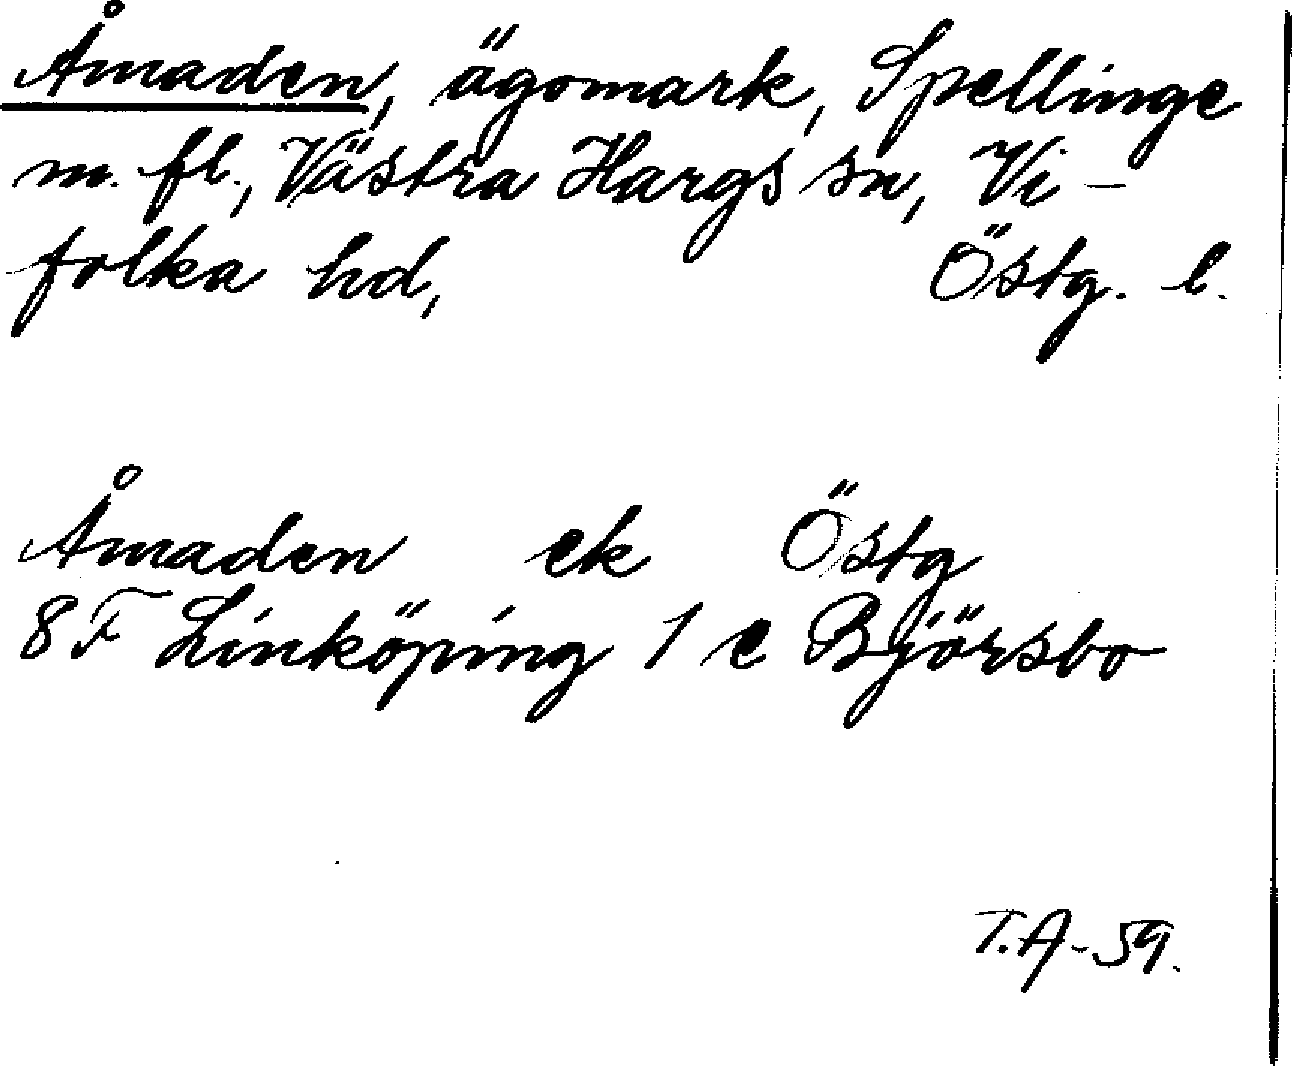 Åmaden, ägomark, Spellinge
m. fl., Västra Hargs sn, Vi-
folka hd, Östg. l.
Åmaden ek Östg
8F Linköping 1 e Björsbo
T.A-59.